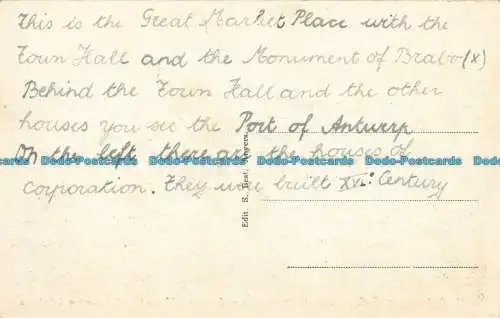 This is the Great Market Place with the
Town Hall and the Monument of Brabo (x)
Behind the Town Hall and the other
houses you see the Port of Antwerp
On the left there are the houses of
corporation. They was built XVIe Century
Edit. S. Best, Anvers.
Dodo-Postcards Dodo-Postcards Dodo-Postcards Dodo-Postcards